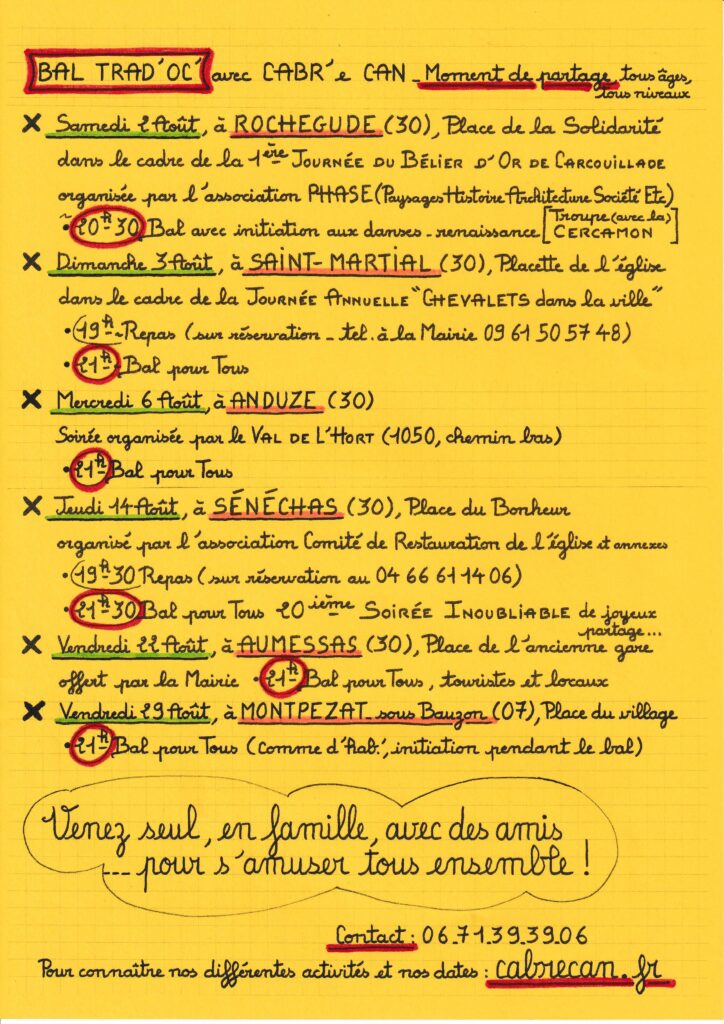 BAL TRAD'OC' avec CABR'e CAN - Moment de partage, tous âges,
tous niveaux
✗ Samedi 2 Août, à ROCHEGUDE (30), Place de la Solidarité
dans le cadre de la 1ère JOURNÉE DU BÉLIER D'OR DE CARCOUILLADE
organisée par l'association PHASE (Paysages Histoire Architecture Société Etc)
• 20h-30 Bal avec initiation aux danses-renaissance [Troupe (avec la) CERCAMON]
✗ Dimanche 3 Août, à SAINT-MARTIAL (30), Placette de l'église
dans le cadre de la JOURNÉE ANNUELLE "CHEVALETS dans la ville"
• 19h- Repas (sur réservation - tel. à la Mairie 09 61 50 57 48)
• 21h- Bal pour Tous
✗ Mercredi 6 Août, à ANDUZE (30)
Soirée organisée par le VAL DE L'HORT (1050, chemin bas)
• 21h- Bal pour Tous
✗ Jeudi 14 Août, à SÉNÉCHAS (30), Place du Bonheur
organisé par l'association Comité de Restauration de l'église et annexes
• 19h-30 Repas (sur réservation au 04 66 61 14 06)
• 21h-30 Bal pour Tous 20ième SOIRÉE INOUBLIABLE de joyeux
partage...
✗ Vendredi 22 Août, à AUMESSAS (30), Place de l'ancienne gare
offert par la Mairie • 21h- Bal pour Tous, touristes et locaux
✗ Vendredi 29 Août, à MONTPEZAT-sous Bauzon (07), Place du village
• 21h- Bal pour Tous (comme d'hab.', initiation pendant le bal)
Venez seul, en famille, avec des amis
... pour s'amuser tous ensemble !
Contact : 06.71.39.39.06
Pour connaître nos différentes activités et nos dates : cabrecan.fr